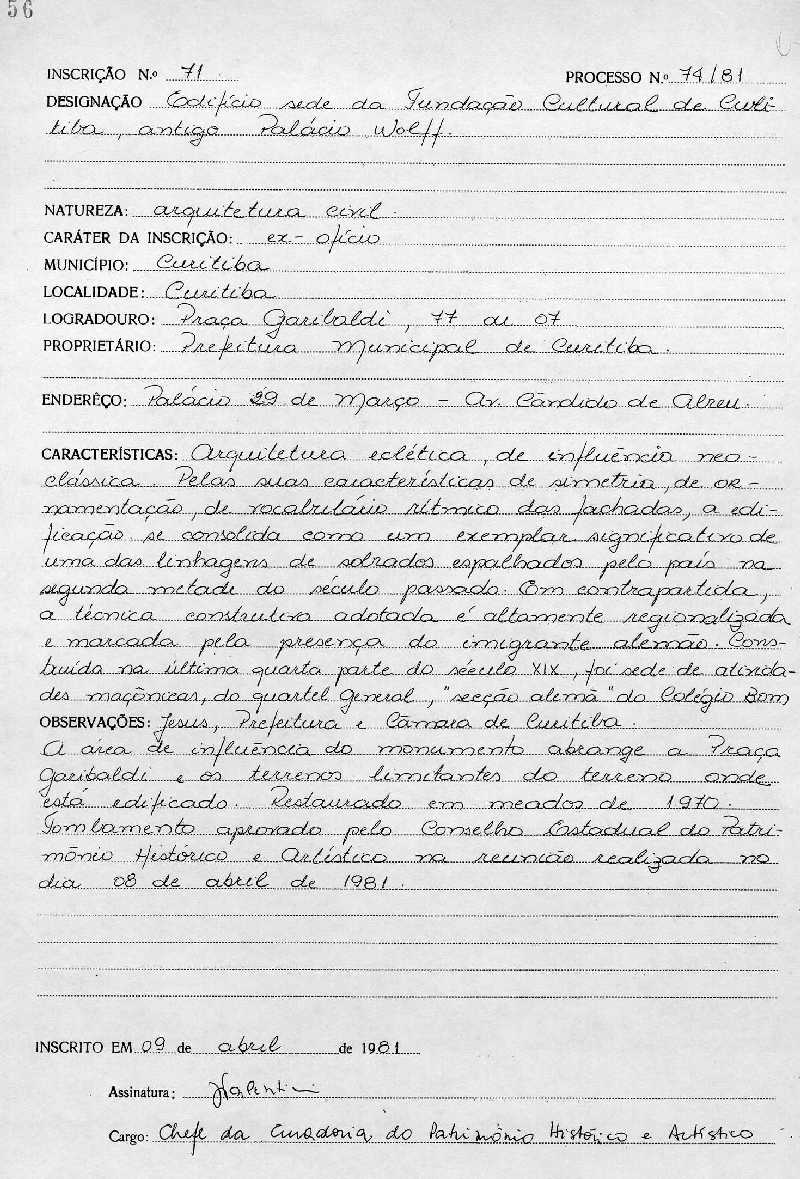 56
INSCRIÇÃO N.º 71 PROCESSO N.º 74/81
DESIGNAÇÃO Edifício sede da Fundação Cultural de Curi-
tiba, antigo Palácio Wolff.
NATUREZA: arquitetura civil.
CARÁTER DA INSCRIÇÃO: ex-ofício
MUNICÍPIO: Curitiba
LOCALIDADE: Curitiba
LOGRADOURO: Praça Garibaldi, 77 ou 07
PROPRIETÁRIO: Prefeitura Municipal de Curitiba.
ENDERÊÇO: Palácio 29 de Março - Av. Cândido de Abreu.
CARACTERÍSTICAS: Arquitetura eclética, de influência neo-
clássica. Pelas suas características de simetria, de or-
namentação, de vocabulário rítmico das fachadas, a edi-
ficação se consolida como um exemplar significativo de
uma das linhagens de sobrados espalhados pelo país na
segunda metade do século passado. Em contrapartida,
a técnica construtiva adotada é altamente regionalizada
e marcada pela presença do imigrante alemão. Cons-
truída na última quarta parte do século XIX, foi sede de ativida-
des maçônicas, do quartel General, "secção alemã" do Colégio Bom
OBSERVAÇÕES: Jesus, Prefeitura e Câmara de Curitiba.
A área de influência do monumento abrange a Praça
Garibaldi e os terrenos limitantes do terreno onde
está edificado. Restaurado em meados de 1970.
Tombamento aprovado pelo Conselho Estadual do Patri-
mônio Histórico e Artístico na reunião realizada no
dia 08 de abril de 1981.
INSCRITO EM 09 de abril de 1981
Assinatura:
Cargo: Chefe da Curadoria do Patrimônio Histórico e Artístico